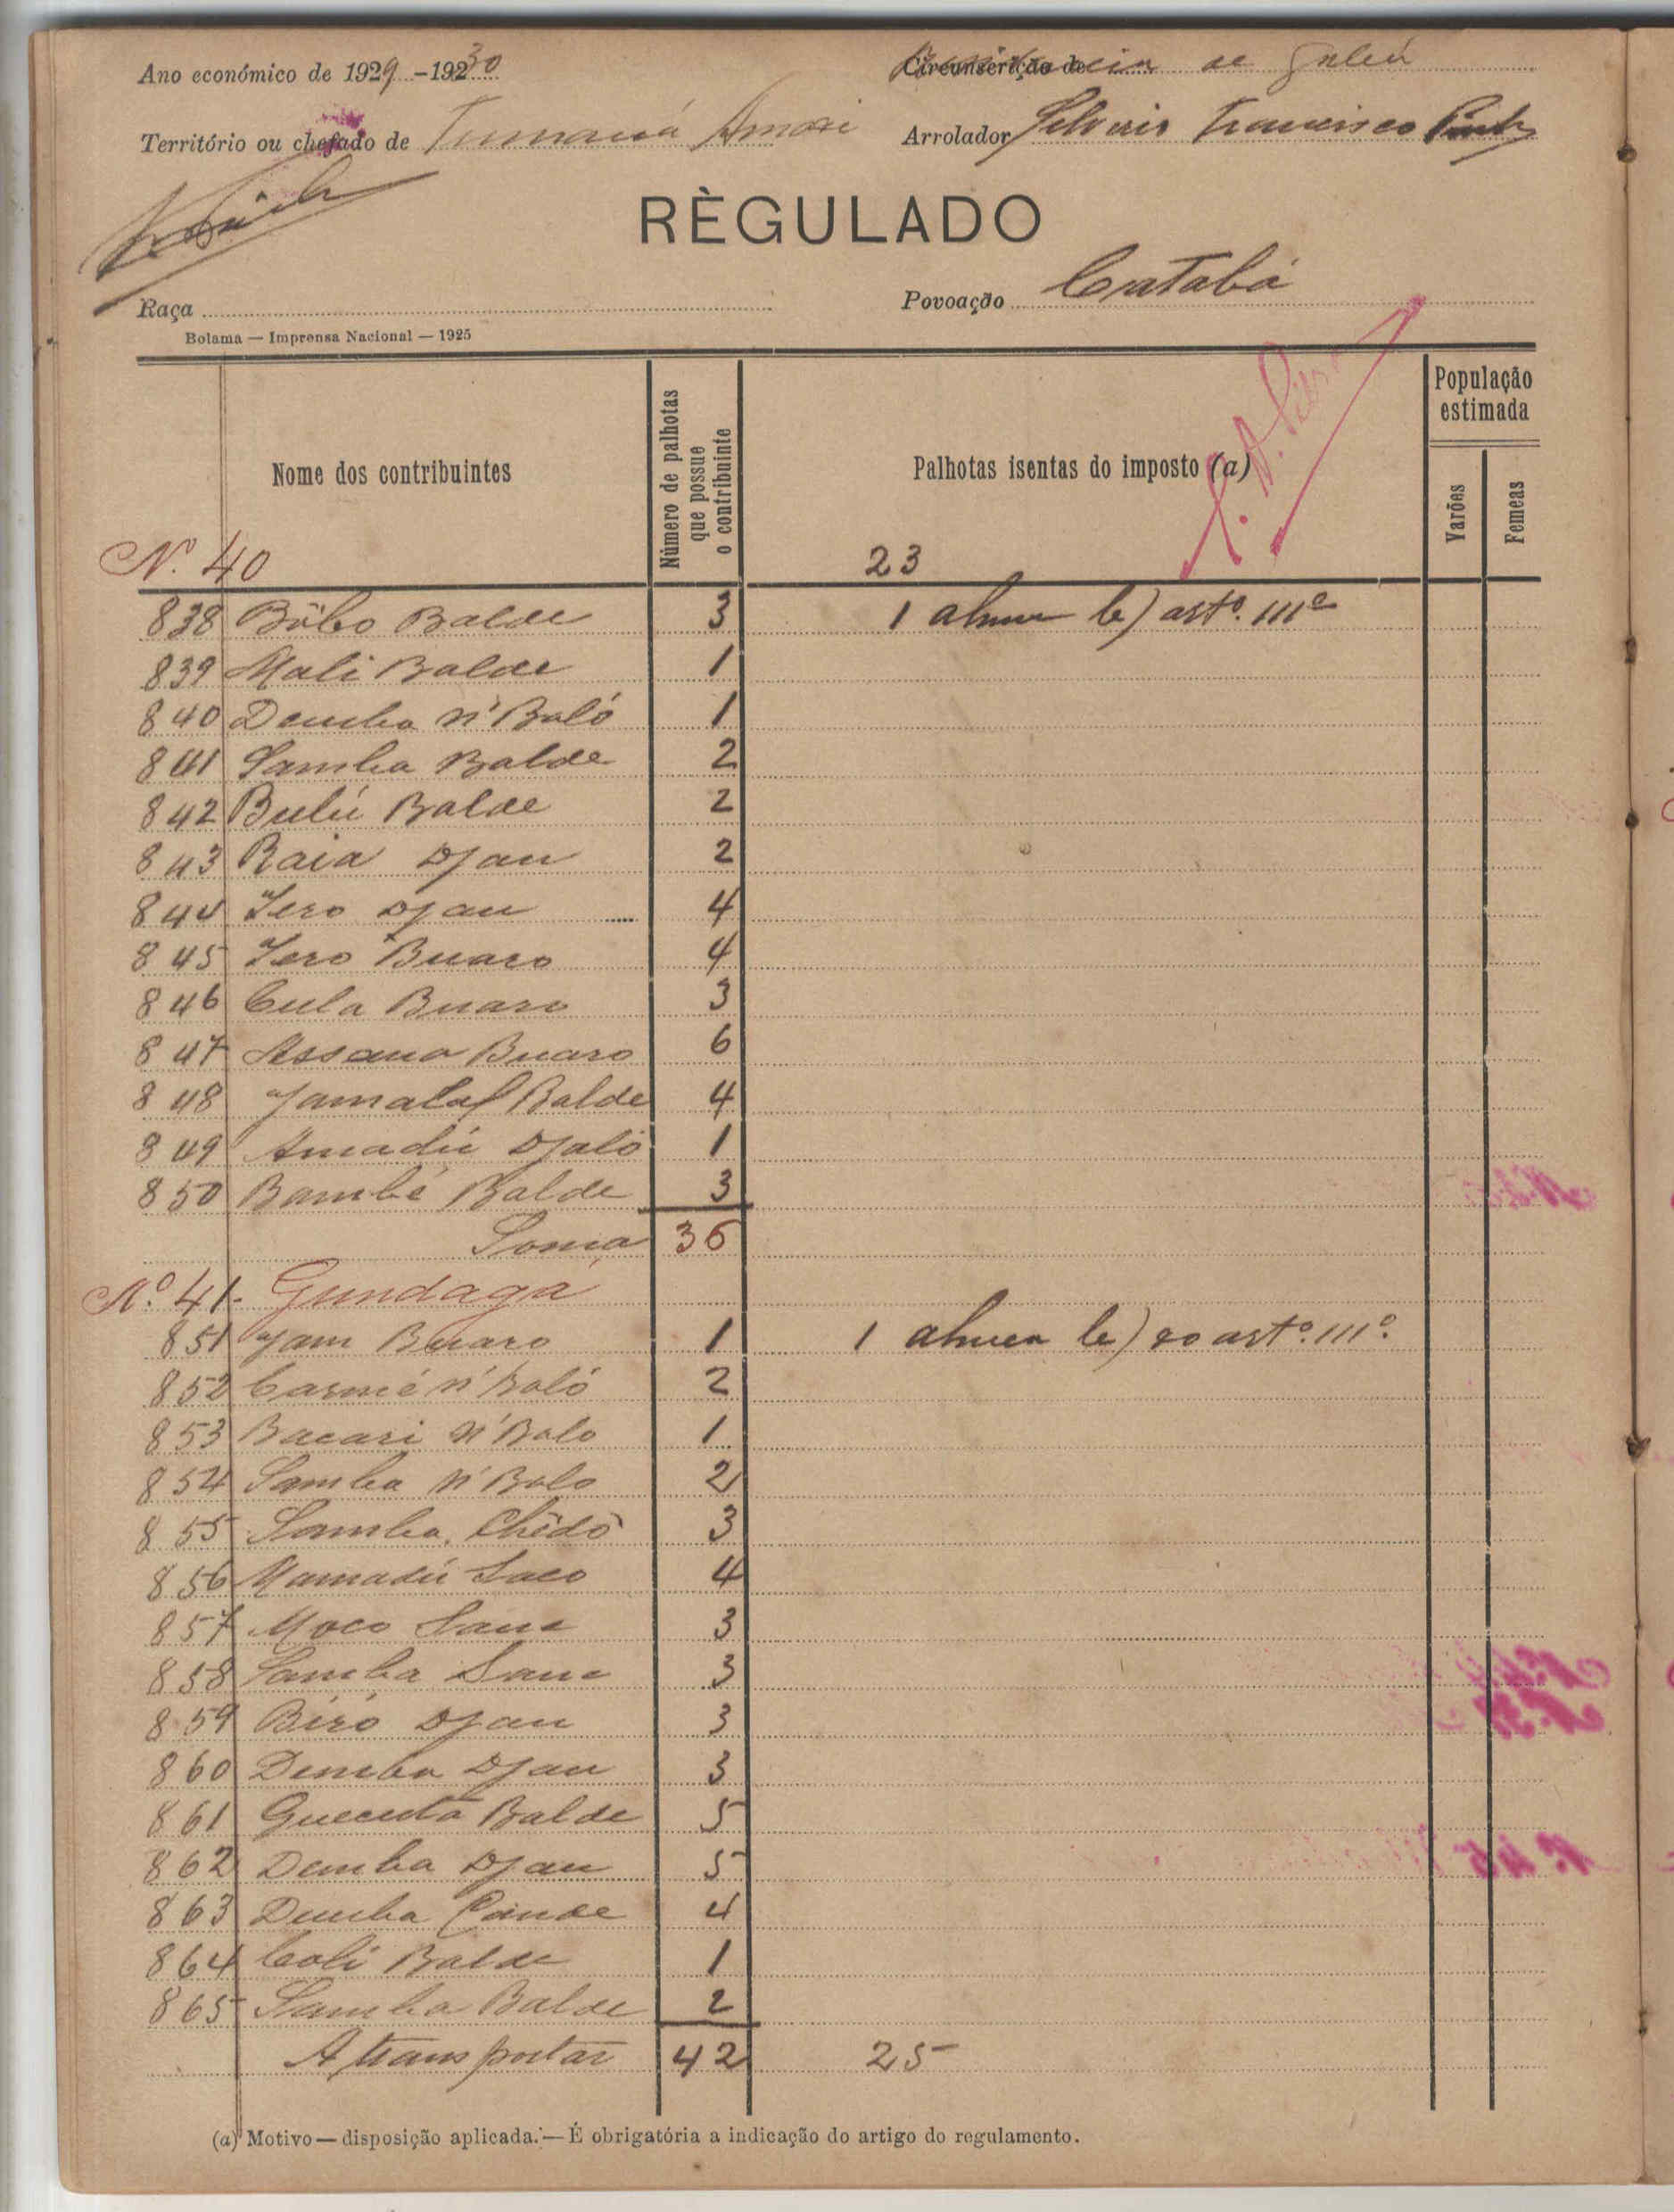 Ano económico de 1929-1930
Circunscrição de de
Território ou chefado de Tumaná Arrolador Francisco
RÈGULADO
Raça Povoação Catabá
Bolama — Imprensa Nacional — 1925
Nome dos contribuintes
Número de palhotas que possue o contribuinte
Palhotas isentas do imposto (a)
População estimada
Varões
Femeas
Nº 40 23
838 Bôbo Balde 3 1 b) artº. 111º
839 Mali Balde 1
840 Demba N'Baló 1
841 Samba Balde 2
842 Bulú Balde 2
843 Raia Djau 2
844 Iero Djau 4
845 Iero Buaro 4
846 Cula Buaro 3
847 Assana Buaro 6
848 Balde 4
849 Amadú Djaló 1
850 Bambé Balde 3
Soma 36
Nº. 41. Gundagá
851 Buaro 1 1 b) do artº. 111º.
852 N'Baló 2
853 Bacari N'Balo 1
854 Samba N'Balo 2
855 Samba Chêdô 3
856 Mamadú Saco 4
857 Moco Sane 3
858 Samba Sane 3
859 Biró Djau 3
860 Demba Djau 3
861 Balde 5
862 Demba Djau 5
863 Demba Cande 4
864 Coli Balde 1
865 Samba Balde 2
A transportar 42 25
(a) Motivo — disposição aplicada. — É obrigatória a indicação do artigo do regulamento.